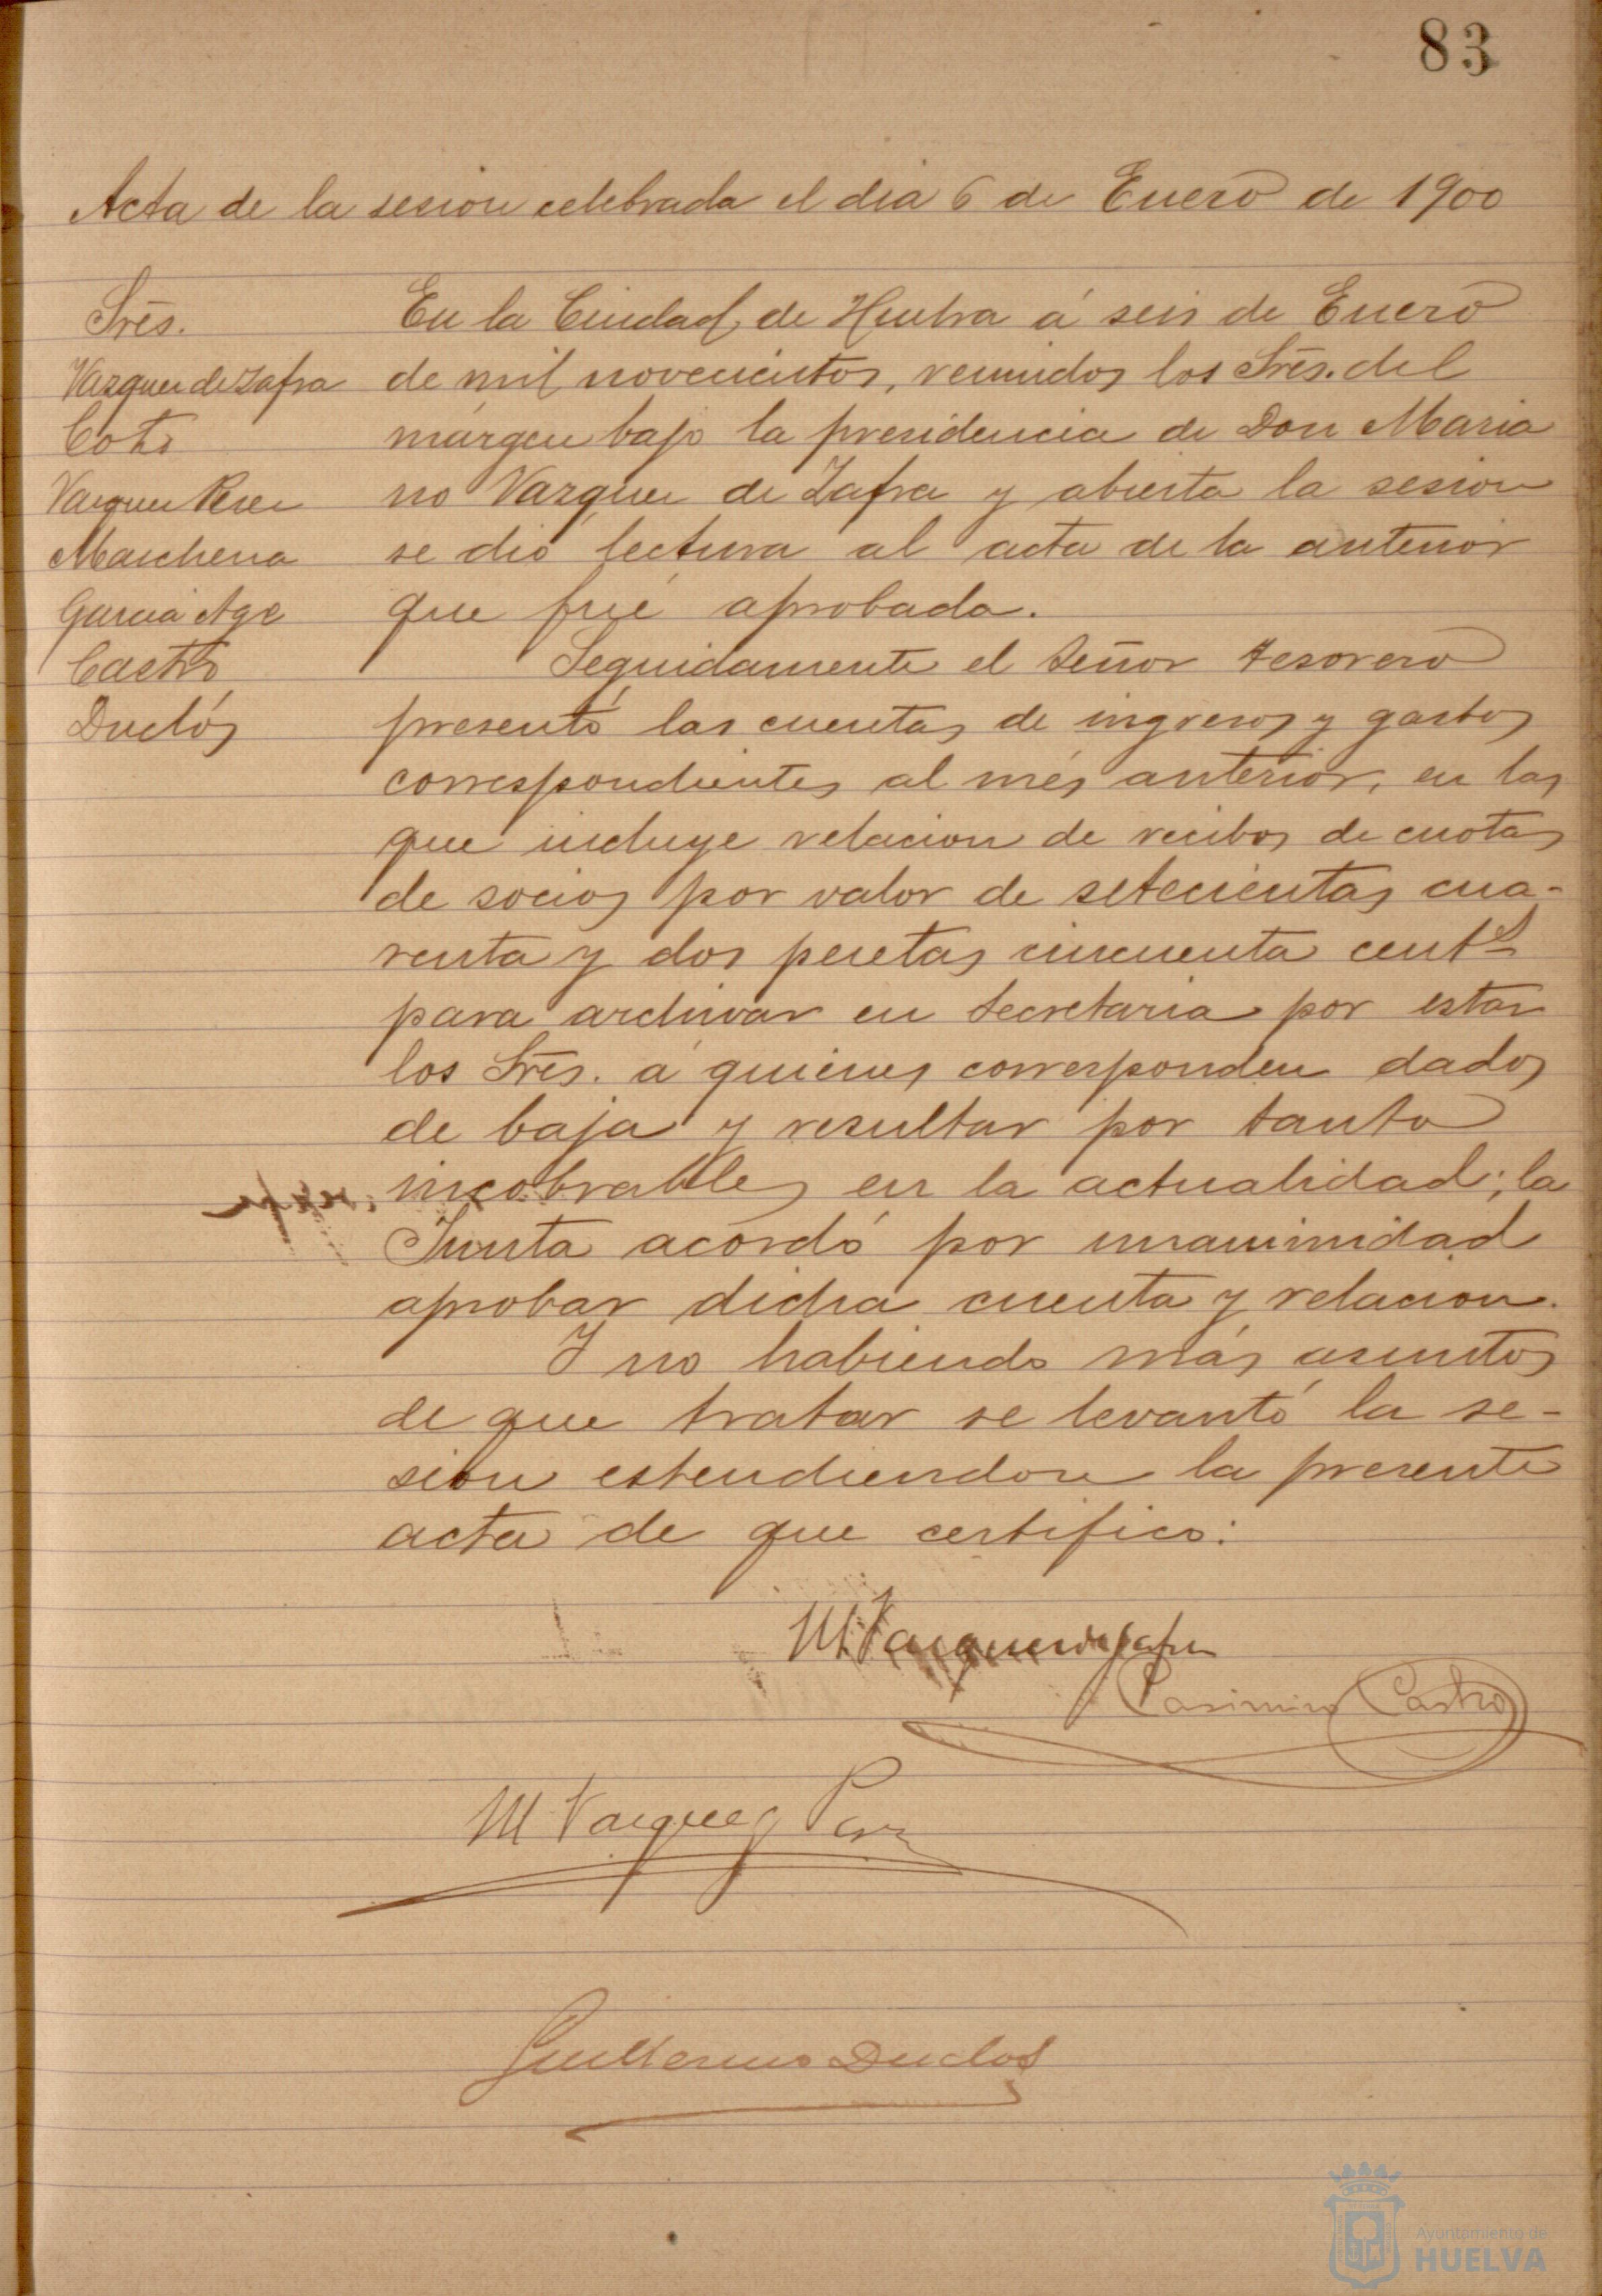 83
Acta de la sesion celebrada el dia 6 de Enero de 1900
Srēs.
Vazquez de Zafra
Coto
Vazquez Perez
Marchena
Garcia Age
Castro
Duclós
En la Ciudad de Huelva á seis de Enero
de mil novecientos, reunidos los Srēs. del
márgen bajo la presidencia de Don Maria
no Vazquez de Zafra y abierta la sesion
se dió lectura al acta de la anterior
que fué aprobada.
Seguidamente el Señor tesorero
presentó las cuentas de ingresos y gastos
correspondientes al més anterior, en las
que incluye relacion de recibos de cuotas
de socios por valor de setecientas cua-
renta y dos pesetas cincuenta cents
para archivar en Secretaria por estar
los Srēs. á quienes corresponden dados
de baja y resultar por tanto
incobrables en la actualidad; la
Junta acordó por unanimidad
aprobar dicha cuenta y relacion.
Y no habiendo más asuntos
de que tratar se levantó la se-
sion estendiendose la presente
acta de que certifico:
M Vazquez de Zafra
Casimiro Castro
M Vazquez Perez
Guillermo Duclos
Ayuntamiento de
HUELVA